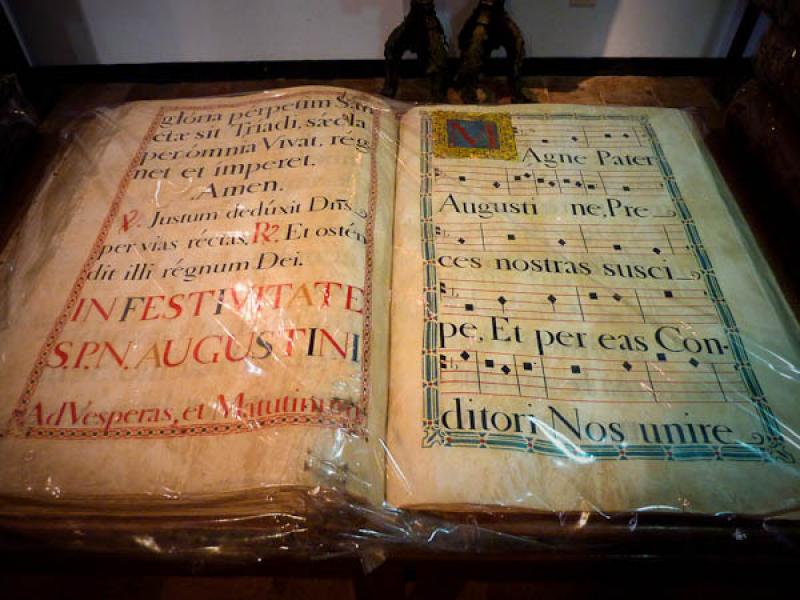 glória perpetim San
ctæ sit Triadi, sæcla
per ómnia Vivat, rég
net et imperet.
Amen.
℣. Justum dedúxit Dñs
per vias réctas, ℟. Et ostén
dit illi régnum Dei.
IN FESTIVITATE
S.P.N. AUGUSTINI
Ad Vesperas, et Matutinum
MAgne Pater
Augusti ne, Pre
ces nostras susci
pe, Et per eas Con-
ditori Nos unire